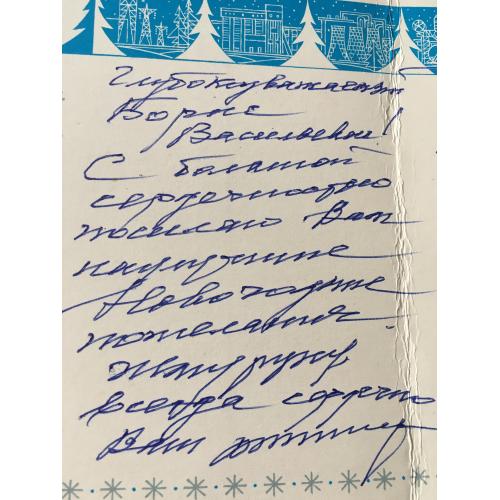 Глубокоуважаемый
Борис
Васильевич!
С большой
сердечностью
посылаю Вам
наилучшие
Новогодние
пожелания.
Жму руку,
всегда сердечно
Ваш